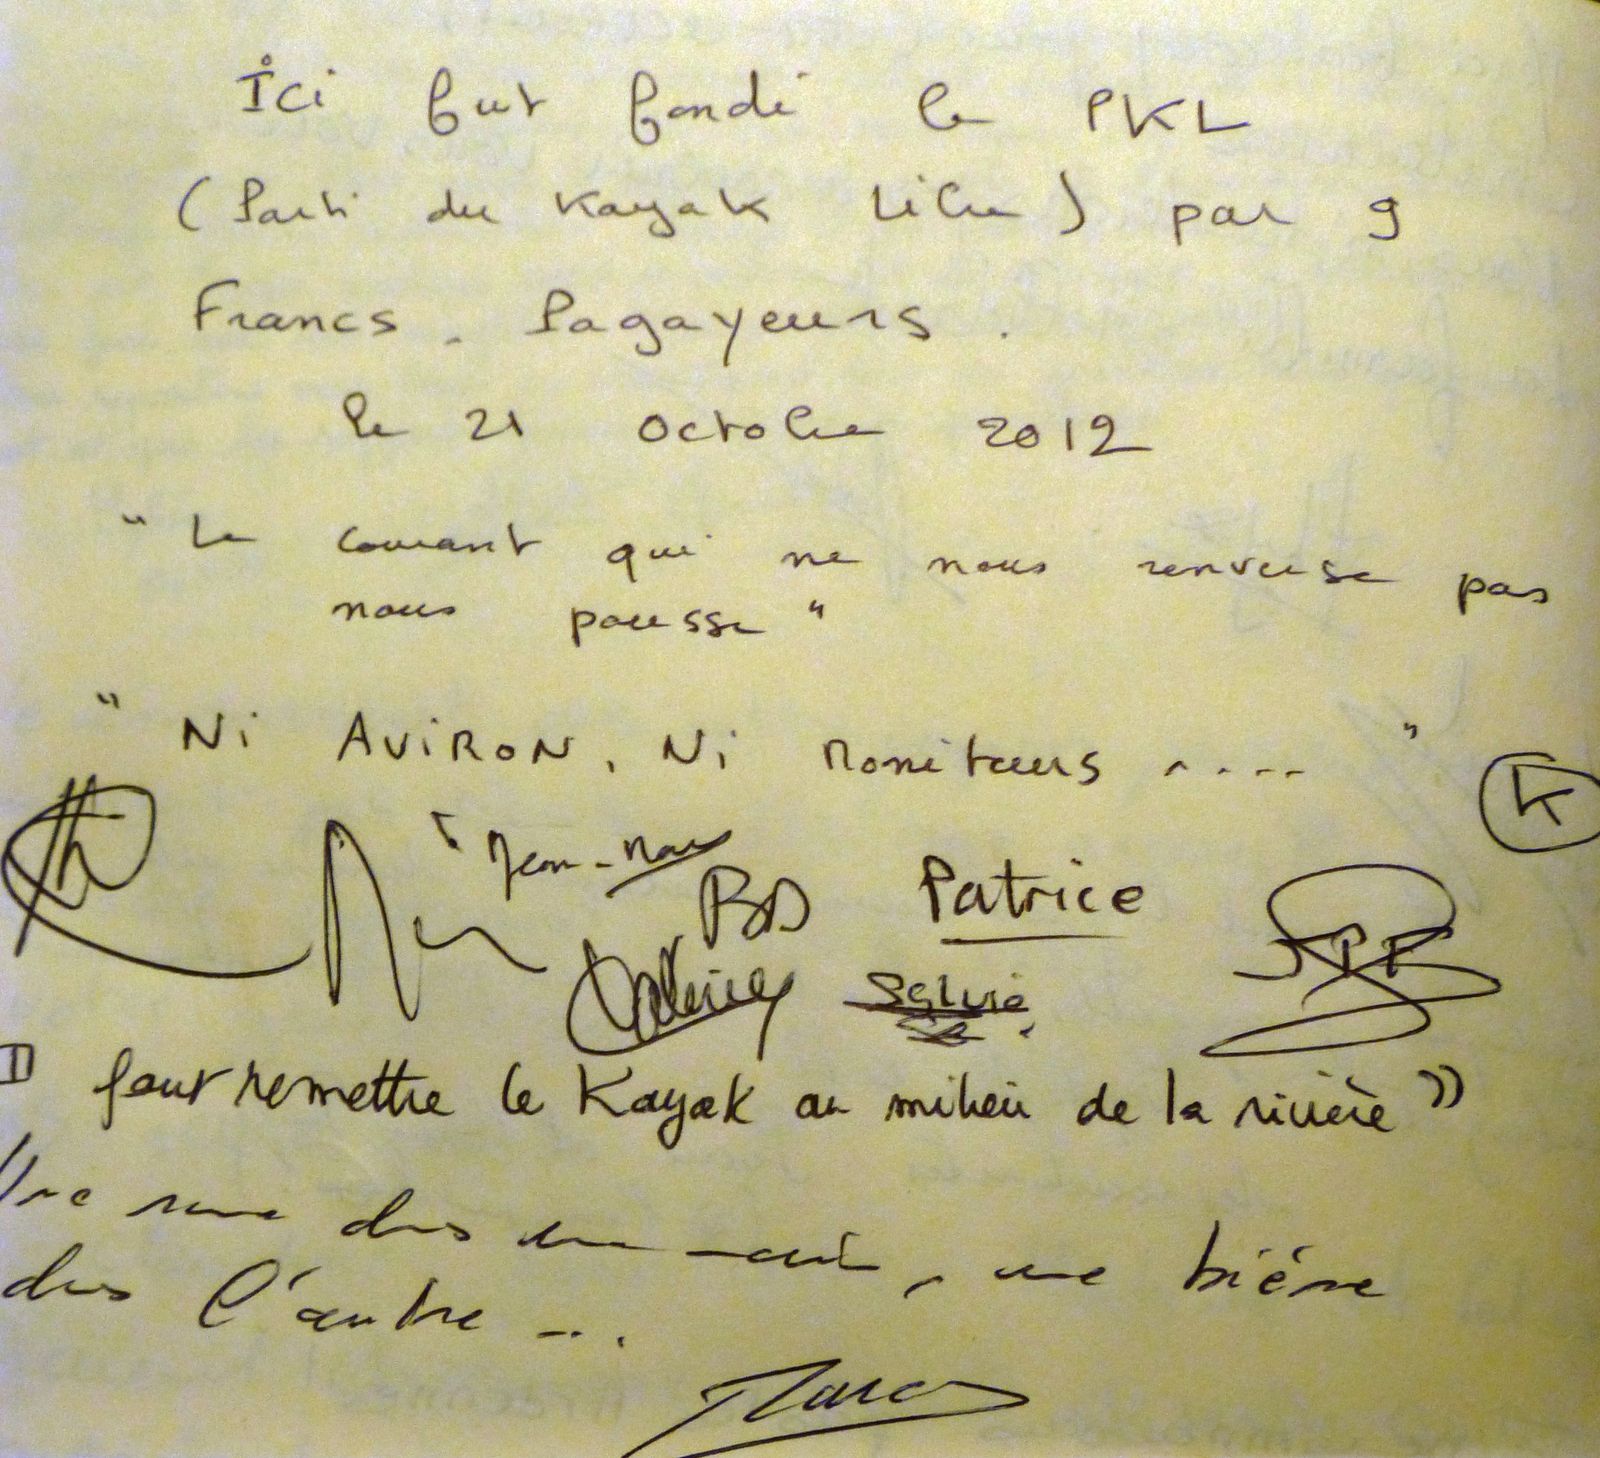 Ici fut fondé le PKL
(Parti du Kayak Libre) par 9
Francs. Pagayeurs.
le 21 octobre 2012
" Le courant qui ne nous renverse pas
nous pousse "
" Ni AVIRON, Ni Moniteurs .... "
K
Jean-Marc
BD Patrice
Sylvie JPP
faut remettre le Kayak au milieu de la rivière "
Une rame dans une main, une bière
dans l'autre ...
Marc